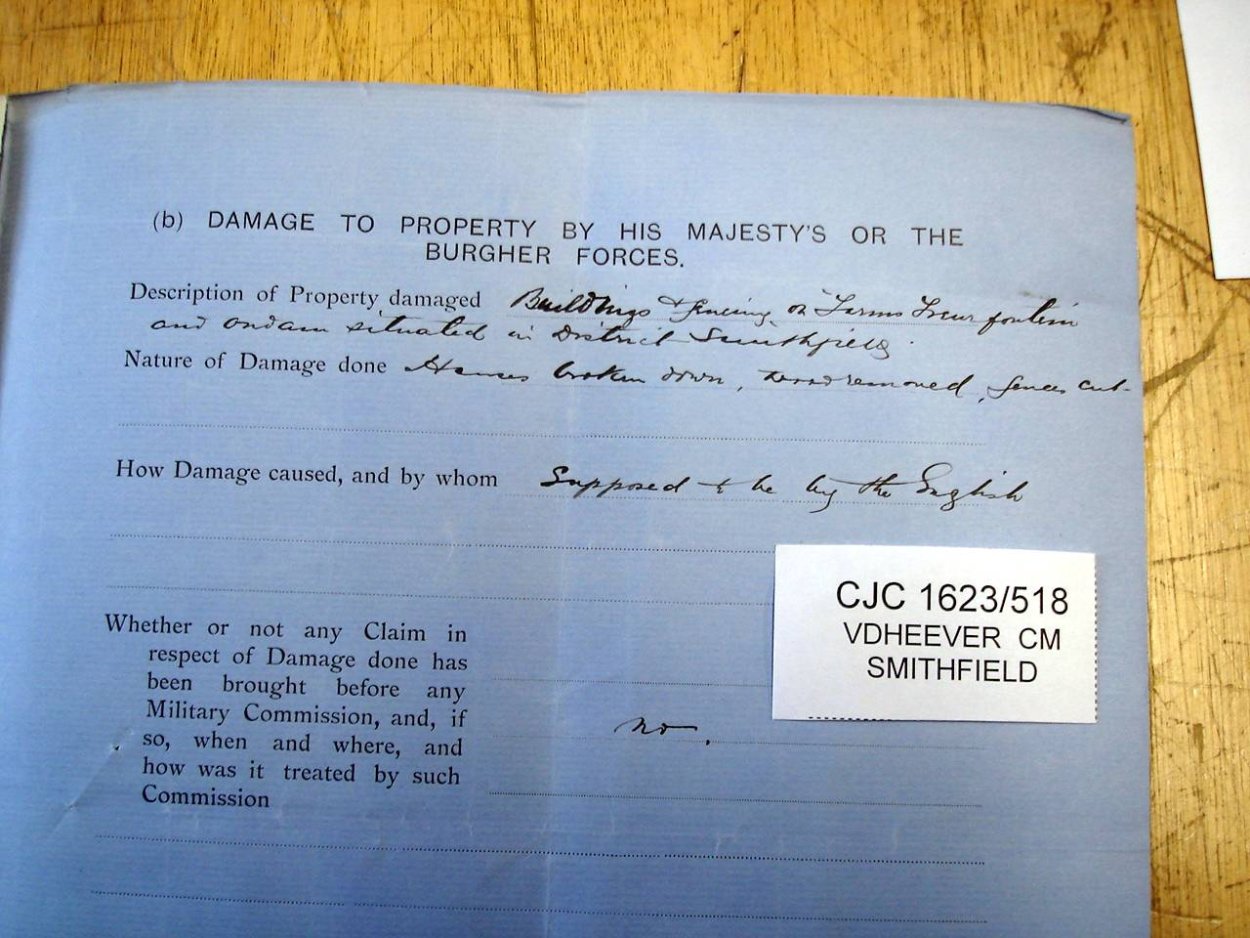 (b) DAMAGE TO PROPERTY BY HIS MAJESTY'S OR THE
BURGHER FORCES.
Description of Property damaged Buildings & fencing on Farms Treurfontein
and ondam situated in District Smithfield.
Nature of Damage done Houses broken down, wood removed, fences cut.
How Damage caused, and by whom Supposed to be by the English
CJC 1623/518
VDHEEVER CM
SMITHFIELD
Whether or not any Claim in
respect of Damage done has
been brought before any
Military Commission, and, if
so, when and where, and
how was it treated by such
Commission
no.